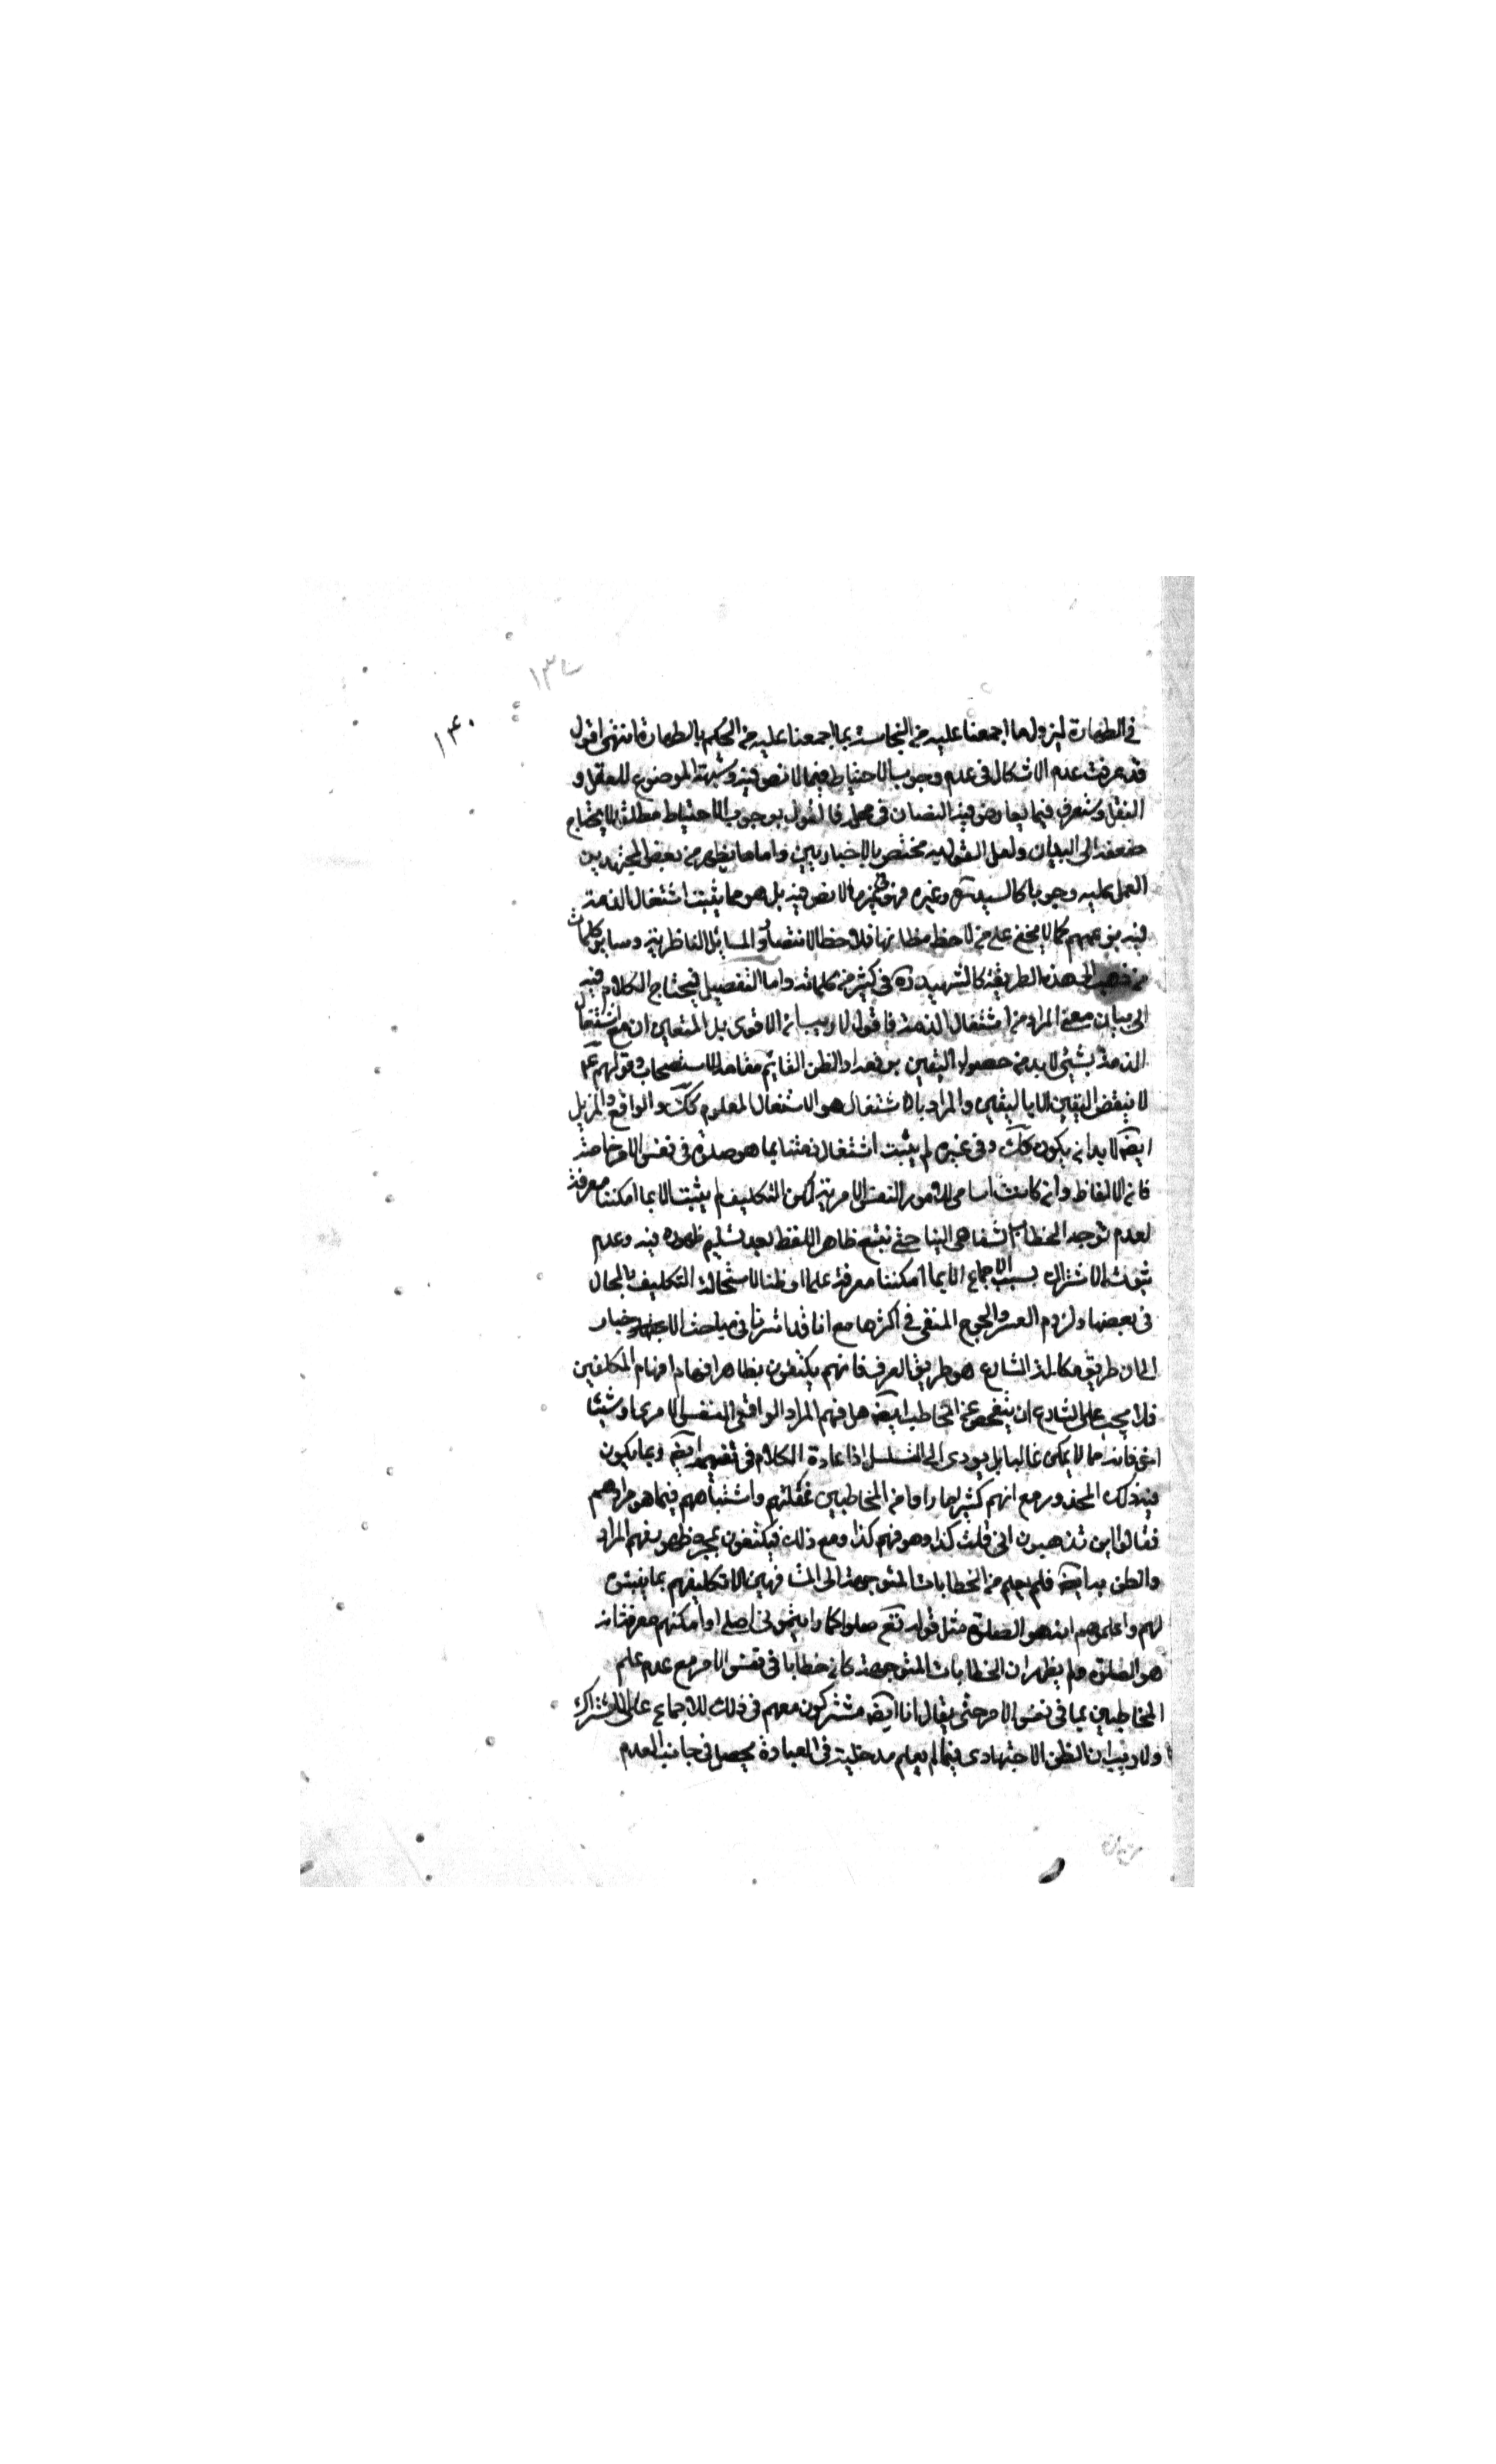 ١٣٩
١٤٠
في الطهارة ليزول ما اجمعنا عليه من النجاسة بما اجمعنا عليه من الحكم بالطهارة انتهى اقول
قد عرفت عدم الاشكال في عدم وجوب الاحتياط فيما لا نص فيه وشبهة الموضوع للعقل و
النقل وستعرف فيما يعارض فيه النصان في محله فالقول بوجوب الاحتياط مطلقا لا يحتاج
ضعفه الى البيان ولعل القول به مختص بالاخباريين واما ما يظهر من بعض المجتهدين
العمل عليه وجوبا كالسيد وغيره فهو في غير ما لا نص فيه بل هو مما يثبت اشتغال الذمة
فيه بزعمهم كما لا يخفى على من لاحظ مظانها فلاحظ الانتصار والمسايل الناظرية وساير كلمات
من ذهب الى هذه الطريقة كالشهيد ره في كثير من كلماته واما التفصيل فيحتاج الكلام فيه
الى بيان معنى المراد من اشتغال الذمة فاقول لا ريب ان الاقوى بل المتعين ان مع اشتغال
الذمة بشيئ لا بد من حصول اليقين برفعه او الظن القايم مقامه للاستصحاب وقولهم ع
لا ينقض اليقين الا باليقين والمراد بالاشتغال هو الاشتغال المعلوم كك والواقع والمزيل
ايضا لا بد ان يكون كك وفي غيره لم يثبت اشتغال ذمتنا بما هو صلوة في نفس الامر خاصة
فان الالفاظ وان كانت اسامي للامور النفس الامرية لكن التكليف لم يثبت الا بما امكننا معرفته
لعدم توجه الخطاب الشفاهي الينا حتى نتبع ظاهر اللفظ بعد تسليم ظهوره فيه وعدم
ثبوت الاشتراك بسبب الاجماع الا بما امكننا معرفته علما او ظنا لاستحالة التكليف بالمحال
في بعضها ولزوم العسر والحرج المنفى في اكثرها مع انا قد اشرنا في مباحث الاخبار
الى ان طريق مكالمة الشارع هو طريق العرف فانهم يكتفون بظاهر افهام المكلفين
فلا يجب على الشارع ان يتفحص عن المخاطب ايضا هل فهم المراد الواقعي النفس الامري او شيئا
اخر فانه مما لا يمكن غالبا بل يودى الى التسلسل اذ اعادة الكلام في تفهيمه ايضا ربما يكون
فيه ذلك المحذور مع انهم كثيرا ما راوا من المخاطبين غفلتهم واشتباههم فيما هو مرادهم
فقالوا اين تذهبون اني قلت كذا وهو فهم كذا ومع ذلك فيكتفون بمجرد ظهور فهم المراد
والظن به ايضا فلم يعلم من الخطابات المتوجهة الى المشافهين الا تكليفهم بما بينوه
لهم واعلموهم انه هو الصلوة مثل قوله صلوا كما رايتموني اصلي او امكنهم معرفة انه
هو الصلوة ولم يظهر ان الخطابات المتوجهة كان خطابا في نفس الامر مع عدم علم
المخاطبين بما في نفس الامر حتى يقال انا ايضا مشتركون معهم في ذلك للاجماع على الاشتراك
ولا ريب ان الظن الاجتهادي فيما لم يعلم مدخليته في العبادة يحصل في جانب العدم